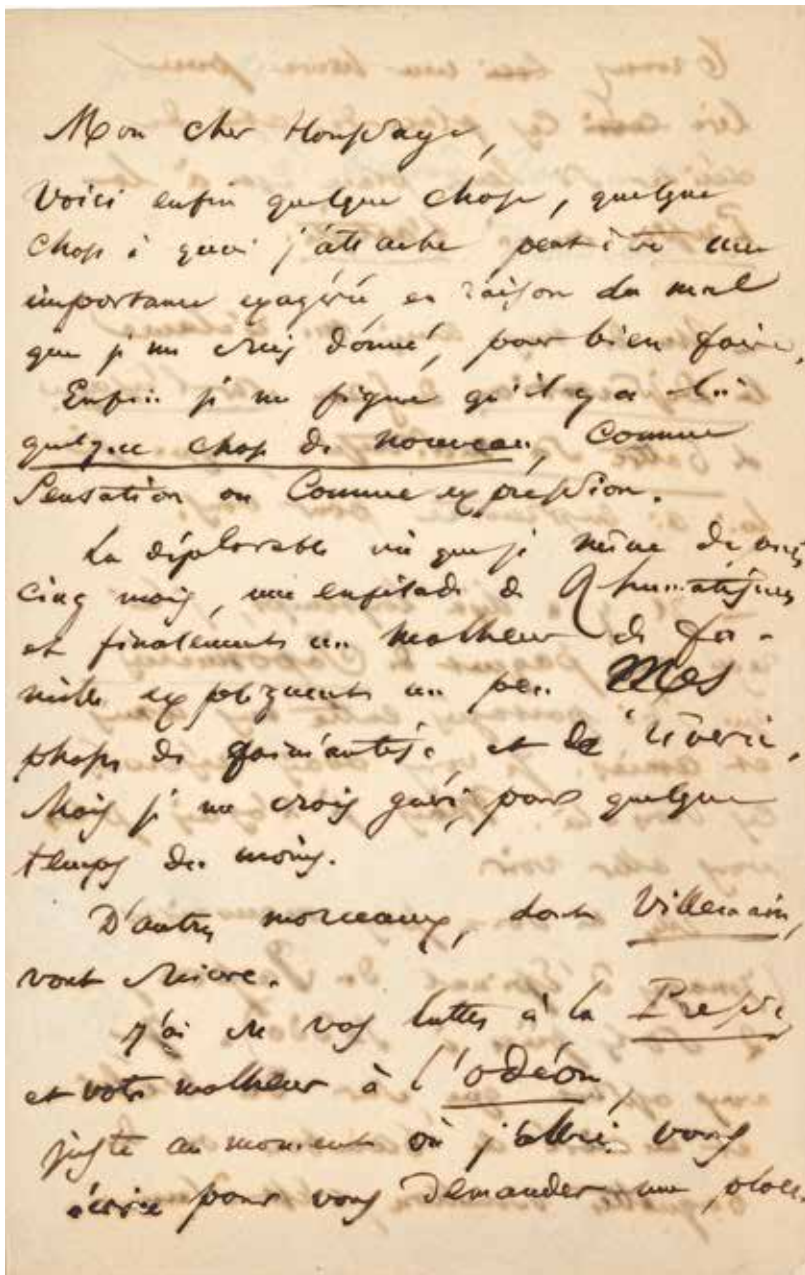 Mon cher Houssaye,
Voici enfin quelque chose, quelque
chose à quoi j'attache peut-être une
importance exagérée, en raison du mal
que je me suis donné, pour bien faire.
Enfin je me figure qu'il y a là
quelque chose de nouveau, comme
sensation ou comme expression.
La déplorable vie que je mène depuis
cinq mois, une enfilade de Rhumatismes
et finalement un malheur de fa-
mille expliquent un peu Mes
phases de fainéantise et de rêverie.
Mais je me crois guéri, pour quelque
temps du moins.
D'autres morceaux, dont Villemain,
vont suivre.
J'ai su vos luttes à la Presse,
et votre malheur à l'odéon,
juste au moment où j'allais vous
écrire pour vous demander une place.